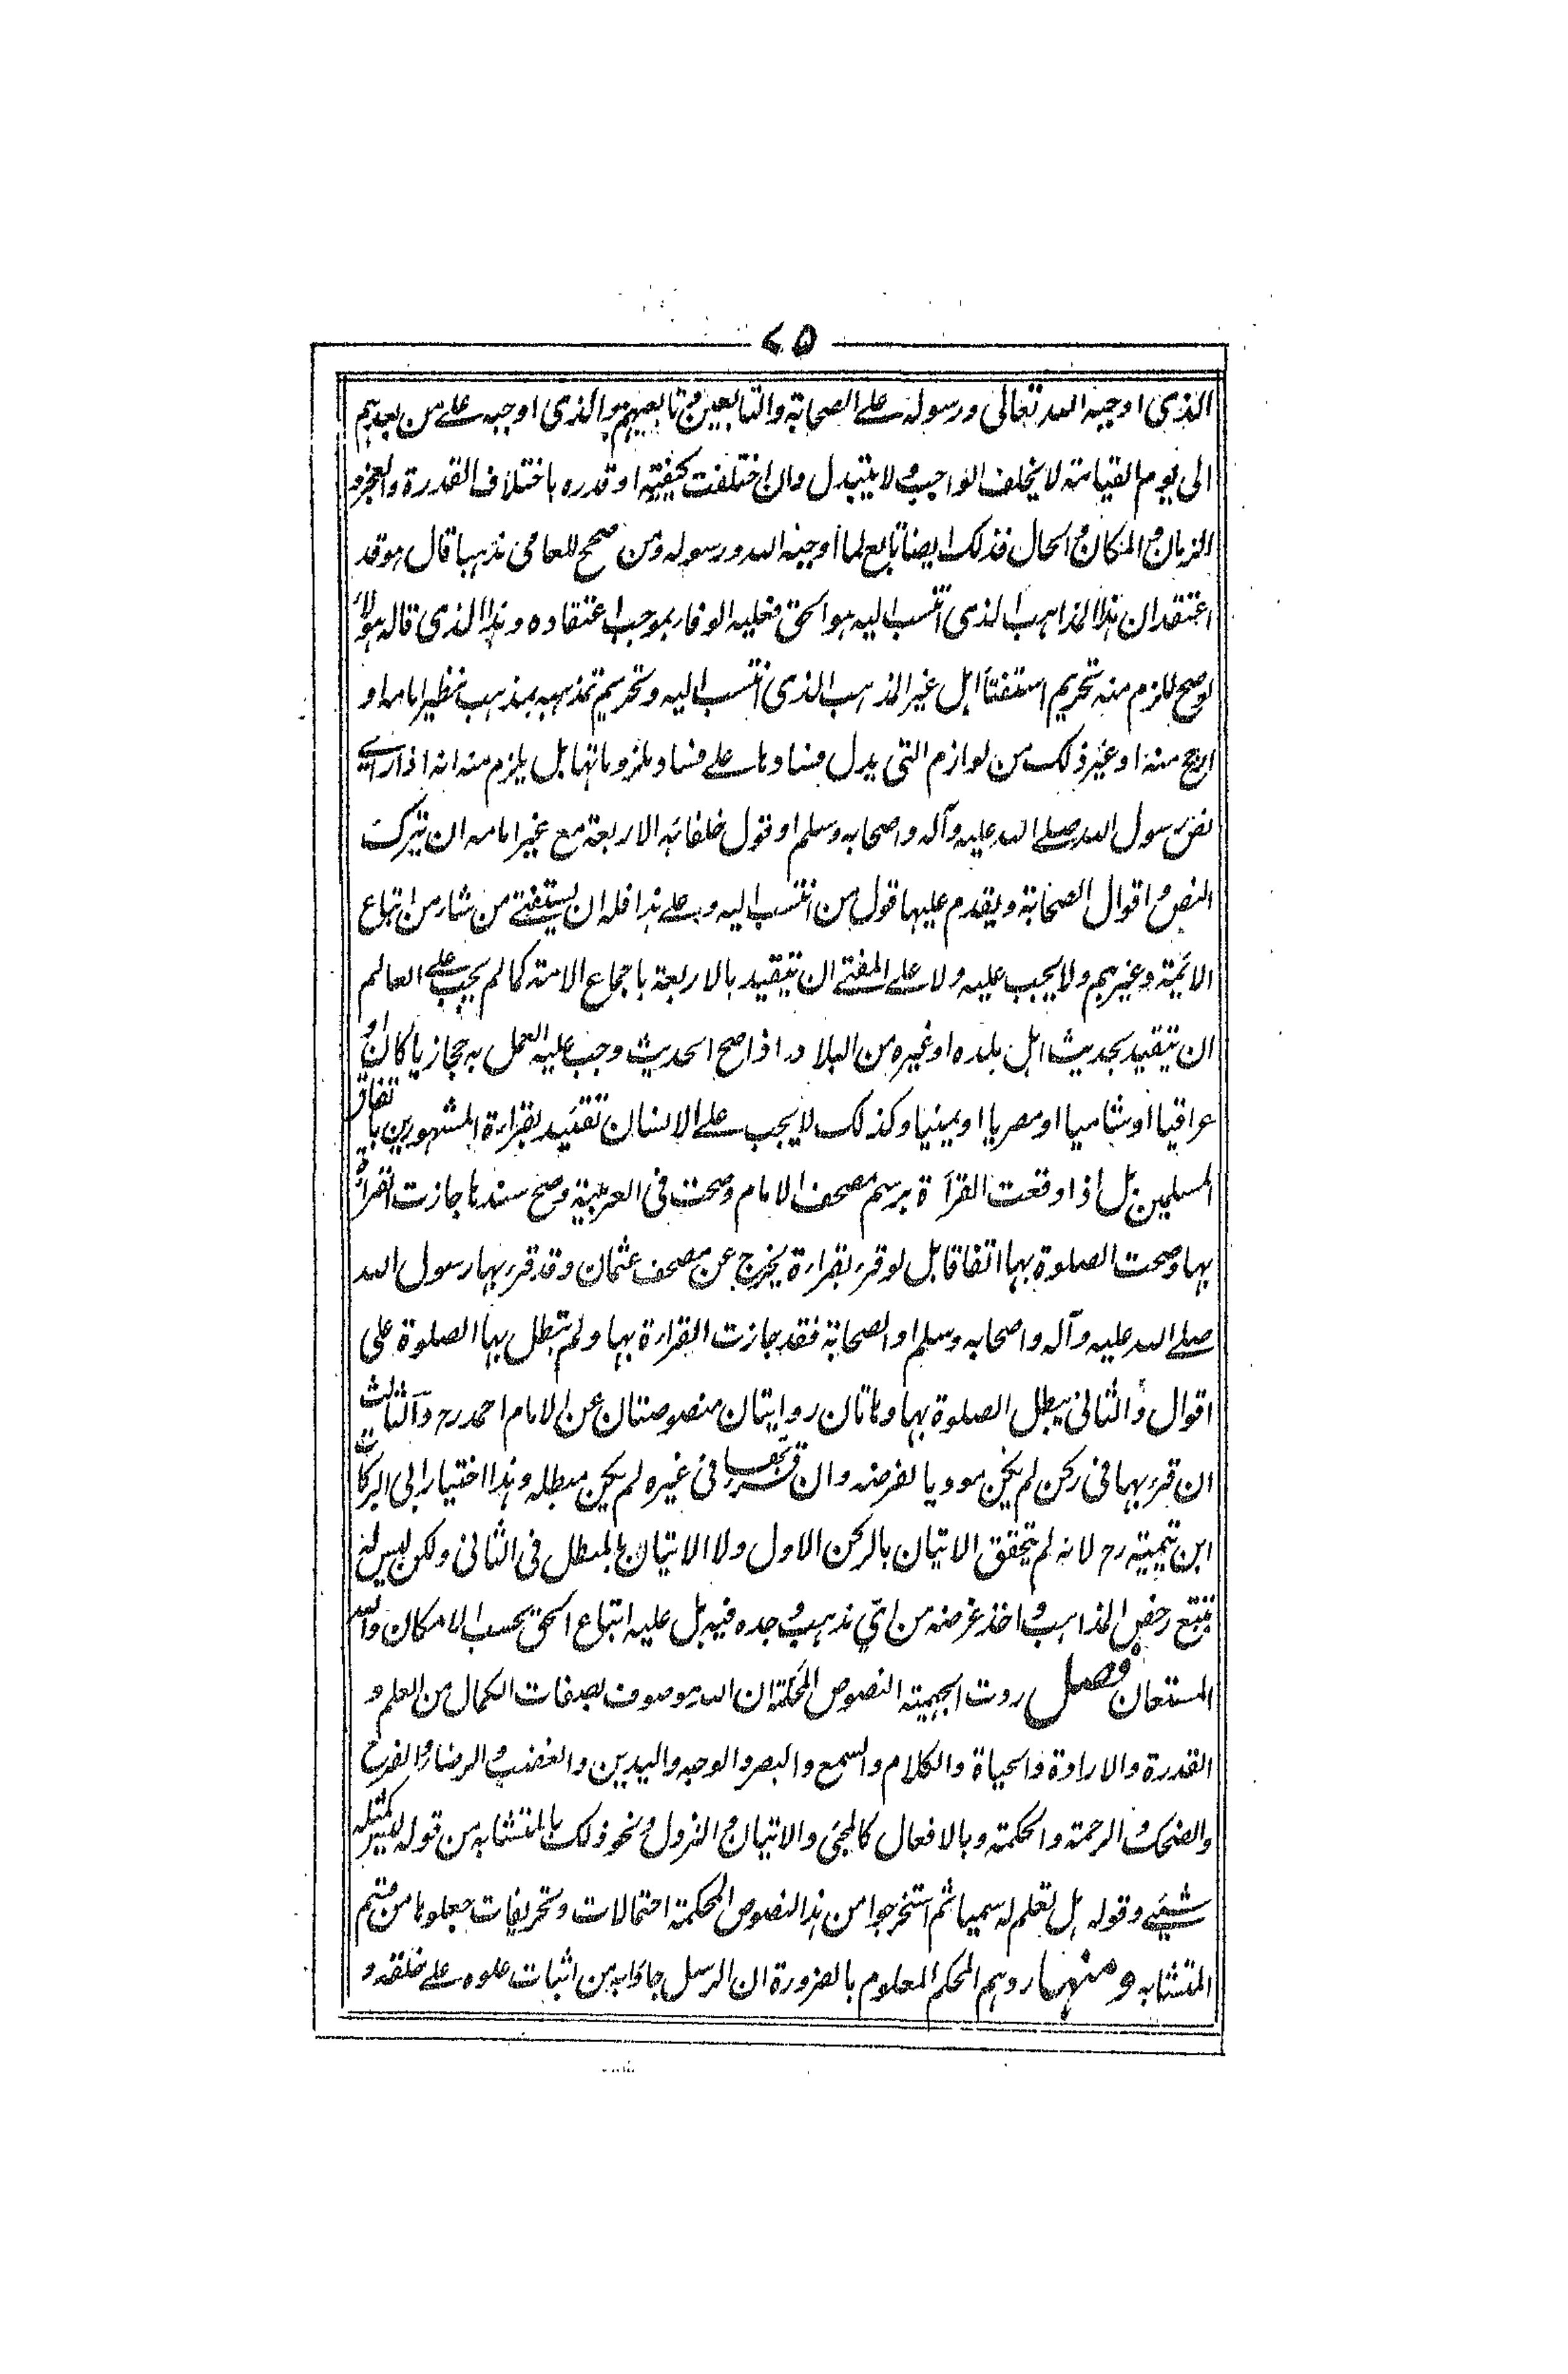 ٧٥
الذى اوجبه الله تعالى ورسوله على الصحابة والتابعين وتابعيهم هو الذى اوجبه على من بعدهم
الى يوم القيامة لا يختلف الواجب ولا يتبدل وان اختلفت كيفيته او قدره باختلاف القدرة والعجز و
الزمان و المكان و الحال فذلك ايضا تابع لما اوجبه الله ورسوله ومن صحح للعامى مذهبا قال هو قد
اعتقد ان هذا المذاهب الذى انتسب اليه هو الحق فعليه الوفاء بموجب اعتقاده وهذا الذى قاله هؤلاء
لو صح للزم منه تحريم استفتاء اهل غير المذهب الذى انتسب اليه وتحريم تمذهبه بمذهب نظير امامه او
ارجح منه او غير ذلك من لوازم التى يدل فسادها على فساد ملزوماتها بل يلزم منه انه اذا راى
نص رسول الله صلى الله عليه وآله واصحابه وسلم او قول خلفائه الاربعة مع غير امامه ان يترك
النص و اقوال الصحابة ويقدم عليها قول من انتسب اليه وعلى هذا فله ان يستفتى من شاء من اتباع
الائمة وغيرهم ولا يجب عليه ولا على المفتى ان يتقيد بالاربعة باجماع الامة كما لم يجب على العالم
ان يتقيد بحديث اهل بلده او غيره من البلاد اذا صح الحديث وجب عليه العمل به حجازيا كان او
عراقيا او شاميا او مصريا او يمنيا وكذلك لا يجب على الانسان تقئيد بقراءة المشهورين باتفاق
المسلمين بل اذا وقعت القرآءة برسم مصحف الامام وصحت فى العربية وصح سندها جازت القراءة
بها وصحت الصلوة بها اتفاقا بل لو قرء بقراءة يخرج عن مصحف عثمان وقد قرء بها رسول الله
صلى الله عليه وآله واصحابه وسلم او الصحابة فقد جازت القراءة بها ولم تبطل بها الصلوة على
اقوال والثانى يبطل الصلوة بها وهاتان روايتان منصوصتان عن الامام احمد رح والثالث
ان قرء بها فى ركن لم يكن موديا لفرضه وان قرء بها فى غيره لم يكن مبطله وهذا اختيار ابى البركات
ابن تيمية رح لانه لم يتحقق الاتيان بالركن الاول ولا الاتيان بالمبطل فى الثانى ولكن ليس له
تتبع رخص المذاهب و اخذ غرضه من اىّ مذهب وجده فيه بل عليه اتباع الحق بحسب الامكان والله
المستعان فصل ردت الجهمية النصوص المحكمة ان الله موصوف بصفات الكمال من العلم و
القدرة والارادة والحياة والكلام والسمع والبصر والوجه واليدين والغضب والرضا والفرح
والضحك والرحمة والحكمة وبالافعال كالمجئ والاتيان و النزول و نحو ذلك بالمتشابه من قوله ليس كمثله
شيئ وقوله هل تعلم له سميا ثم استخرجوا من هذا النصوص المحكمة احتمالات وتحريفات جعلوها من قسم
المتشابه ومنها ردهم المحكم المعلوم بالضرورة ان الرسل جاؤا به من اثبات علوه على خلقه و